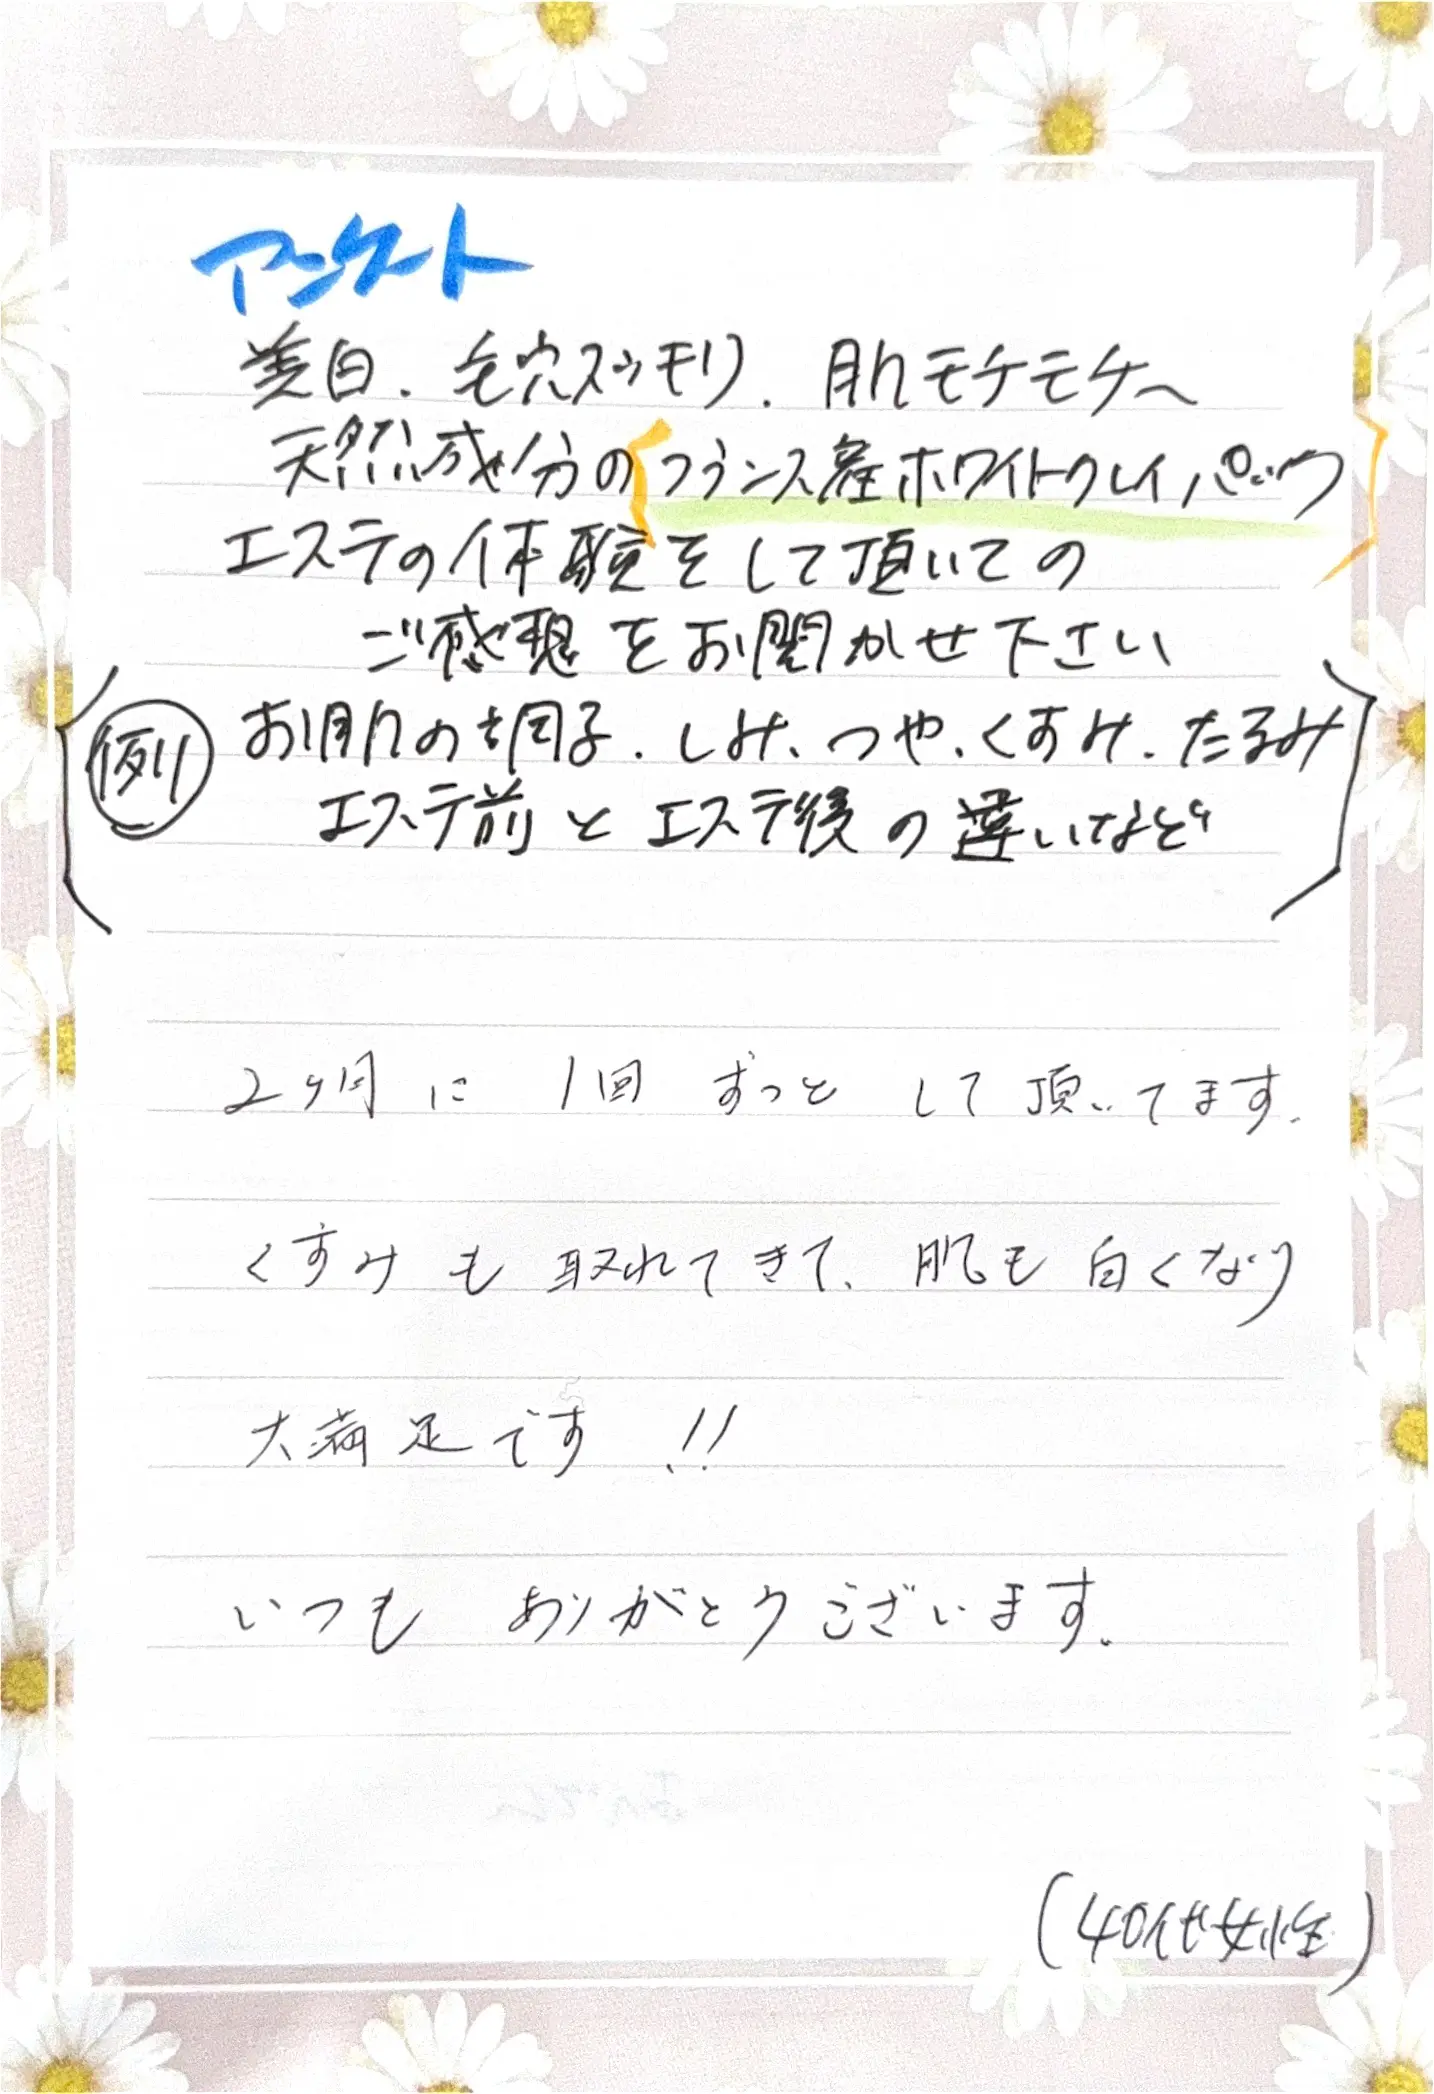 アンケート
美白.毛穴スッキリ.肌モチモチへ
天然成分の「フランス産ホワイトクレイパック」
エステの体験をして頂いての
ご感想をお聞かせ下さい
(例)お肌の調子.しみ、つや、くすみ.たるみ
エステ前とエステ後の違いなど)
2ヶ月に1回ずっとして頂いてます.
くすみも取れてきて、肌も白くなり
大満足です!!
いつもありがとうございます.
(40代女性)